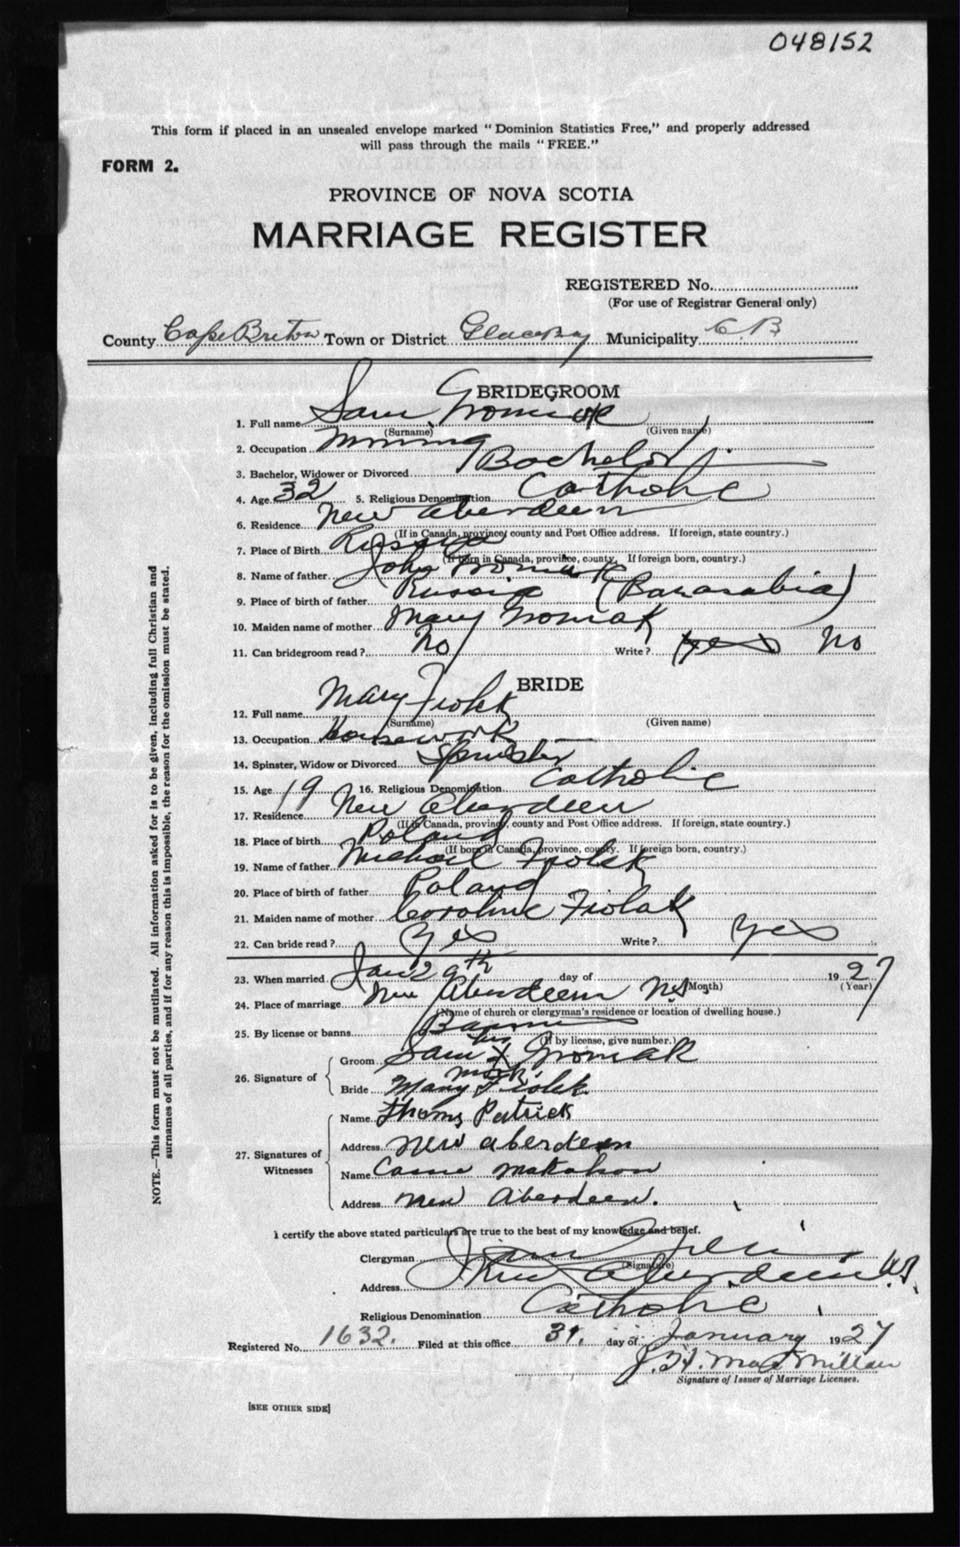 048152
This form if placed in an unsealed envelope marked "Dominion Statistics Free," and properly addressed
will pass through the mails "FREE."
FORM 2.
PROVINCE OF NOVA SCOTIA
MARRIAGE REGISTER
REGISTERED No.
(For use of Registrar General only)
County Cape Breton Town or District Glace Bay Municipality C.B
BRIDEGROOM
1. Full name Sam
(Surname) (Given name)
2. Occupation Mining
3. Bachelor, Widower or Divorced Bachelor
4. Age 32 5. Religious Denomination Catholic
6. Residence New Aberdeen
(If in Canada, province, county and Post Office address. If foreign, state country.)
7. Place of Birth Russia
(If born in Canada, province, county. If foreign born, country.)
8. Name of father John Gromiak
9. Place of birth of father Russia (Barasabia)
10. Maiden name of mother Mary Gromiak
11. Can bridegroom read? No Write? Yes No
BRIDE
12. Full name Mary Fiolek
(Surname) (Given name)
13. Occupation Housework
14. Spinster, Widow or Divorced Spinster
15. Age 19 16. Religious Denomination Catholic
17. Residence New Aberdeen
(If in Canada, province, county and Post Office address. If foreign, state country.)
18. Place of birth Poland
(If born in Canada, province, county. If foreign born, country.)
19. Name of father Michael Fiolek
20. Place of birth of father Poland
21. Maiden name of mother Caroline Fiolak
22. Can bride read? Yes Write? Yes
23. When married Jan 29th day of 1927
(Month) (Year)
24. Place of marriage New Aberdeen N.S.
(Name of church or clergyman's residence or location of dwelling house.)
25. By license or banns Banns
(If by license, give number.)
26. Signature of
Groom Sam his X mark Gromiak
Bride Mary Fiolek
27. Signatures of Witnesses
Name Thomas Patrick
Address New Aberdeen
Name
Address New Aberdeen.
I certify the above stated particulars are true to the best of my knowledge and belief.
Clergyman
(Signature)
Address New Aberdeen N.S.
Religious Denomination Catholic
Registered No. 1632. Filed at this office 31. day of January 1927
J. H. MacMillan
Signature of Issuer of Marriage Licenses.
[SEE OTHER SIDE]
NOTE.—This form must not be mutilated. All information asked for is to be given, including full Christian and
surnames of all parties, and if for any reason this is impossible, the reason for the omission must be stated.